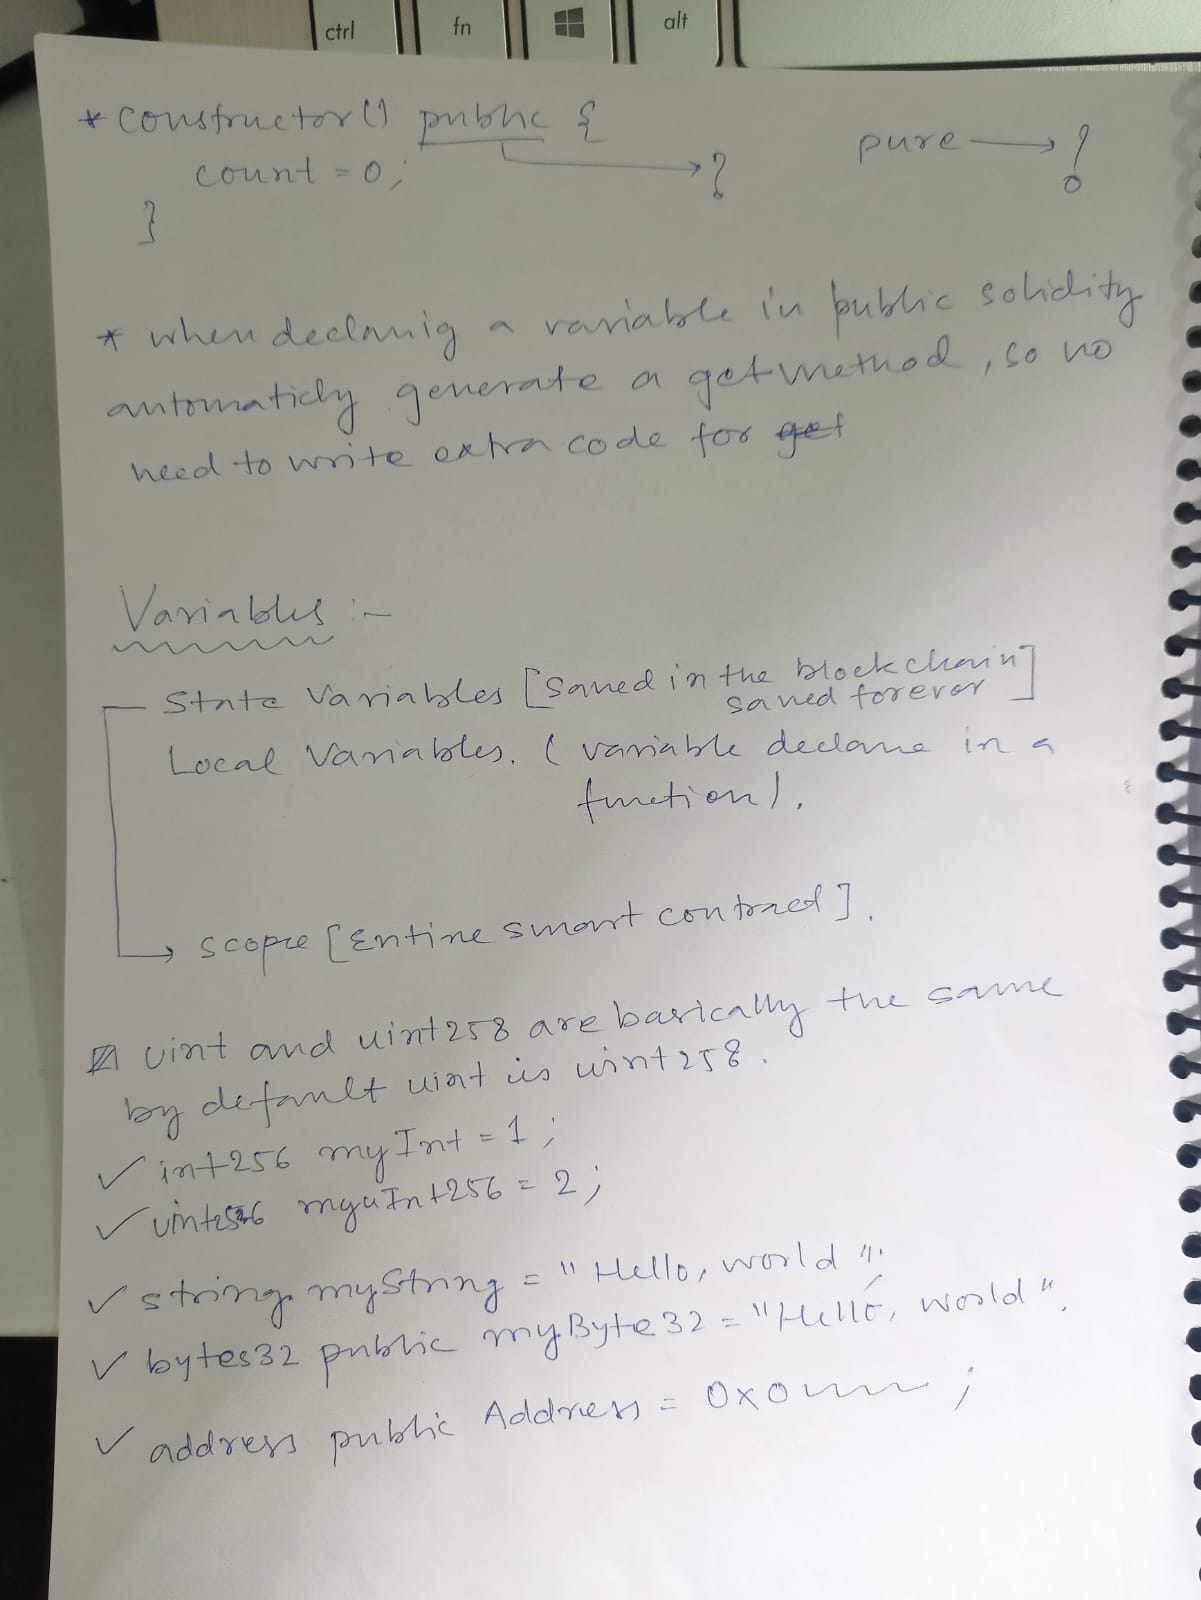 ctrl fn alt
* constructor() public {
count = 0; → ? pure → ?
}
* when declaring a variable in public solidity
automaticly generate a get method, so no
need to write extra code for get
Variables :-
State Variables [Saved in the blockchain]
saved forever
Local Variables. ( variable declare in a
function).
→ scope [Entire smart contract].
uint and uint258 are basically the same
by default uint is uint258.
✓ int256 myInt = 1;
✓ uint256 myuInt256 = 2;
✓ string myString = "Hello, world";
✓ bytes32 public myByte32 = "Hello, world".
✓ address public Address = 0x0 ;